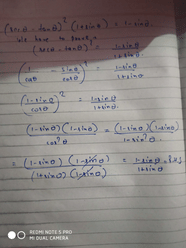 (secθ - tanθ)² (1+sinθ) = 1 - sinθ
We have to prove,
(secθ - tanθ)² = 1-sinθ / 1+sinθ
(1/cosθ - sinθ/cosθ)² = 1-sinθ / 1+sinθ
(1-sinθ / cosθ)² = 1-sinθ / 1+sinθ.
(1-sinθ)(1-sinθ) / cos²θ = (1-sinθ)(1-sinθ) / 1-sin²θ.
= (1-sinθ)(1-sinθ) / (1+sinθ)(1-sinθ) = 1-sinθ / 1+sinθ =
REDMI NOTE 5 PRO
MI DUAL CAMERA